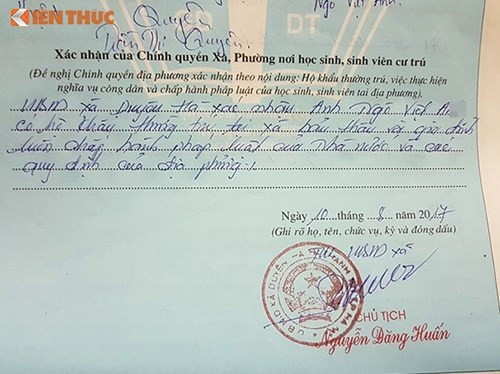 KIẾN THỨC
Quyên
Ngô Việt Anh.
ĐT
Trần Thị Quyên.
Xác nhận của Chính quyền Xã, Phường nơi học sinh, sinh viên cư trú
(Đề nghị Chính quyền địa phương xác nhận theo nội dung: Hộ khẩu thường trú, việc thực hiện
nghĩa vụ công dân và chấp hành pháp luật của học sinh, sinh viên tại địa phương).
UBND xã Duyên Hà xác nhận Anh Ngô Việt
có hộ khẩu thường trú tại xã bản thân và gia đình
luôn chấp hành pháp luật của Nhà nước và các
quy định của địa phương.
Ngày 10 tháng 8 năm 2017
(Ghi rõ họ, tên, chức vụ, ký và đóng dấu)
TM UBND xã
U.B.N.D XÃ DUYÊN HÀ
CHỦ TỊCH
Nguyễn Đăng Huấn